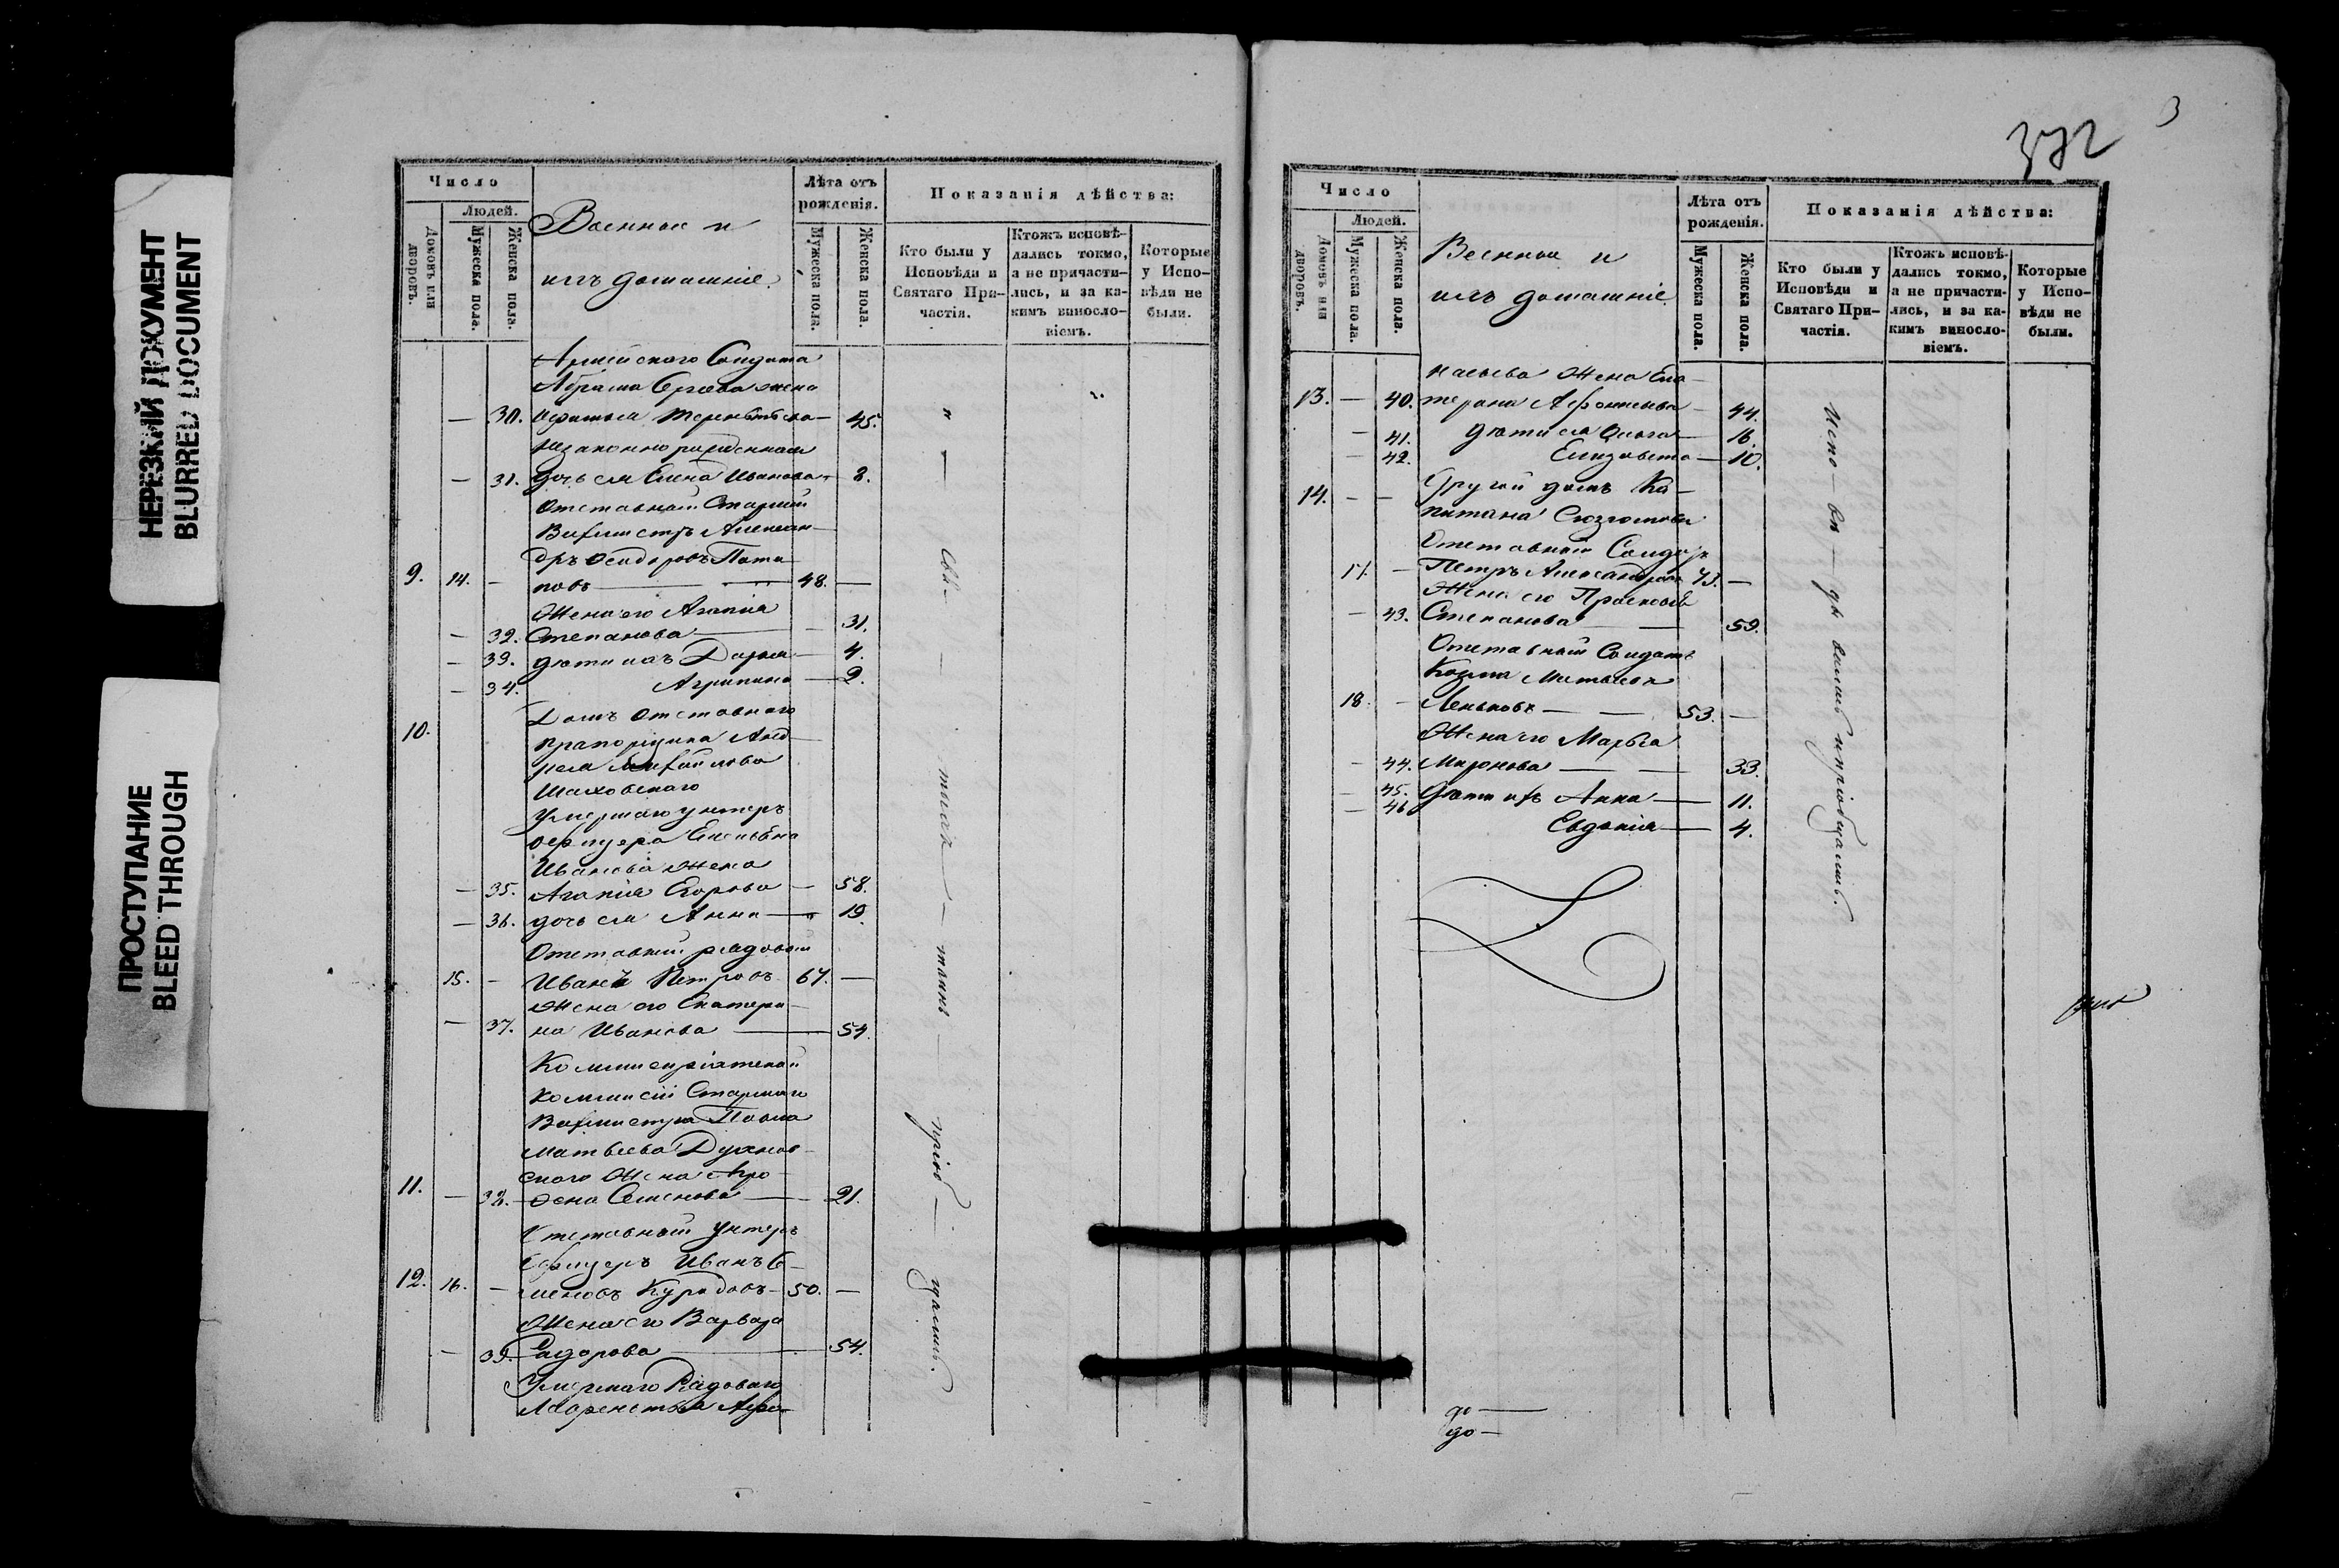 НЕРЕЗКИЙ ДОКУМЕНТ
BLURRED DOCUMENT
ПРОСТУПАНИЕ
BLEED THROUGH
Число
Людей.
Домовъ или дворовъ.
Мужеска пола.
Женска пола.
Военные и
ихъ домашніе.
Лѣта отъ рожденія.
Мужеска пола.
Женска пола.
Показанія дѣйства:
Кто были у Исповѣди и Святаго Причастія.
Ктожъ исповѣдались токмо, а не причастились, и за какимъ винословіемъ.
Которые у Исповѣди не были.
Армейскаго Солдата
Абрама Сергѣева жена
— 30. Терентьева — 45.
Незаконнорожденная
— 31. дочь ея Елена Иванова — 8.
Отставной Старшій
Вахмистръ Алексан-
дръ Сидоровъ Пота-
9. 14. — повъ — 48. —
Жена его Агапія
— 32. Степанова — 31.
— 33. дѣти ихъ Дарья — 4.
— 34. Агрипина — 2.
10. Домъ Отставнаго
прапорщика Анд-
рея Михайлова
Шаховскаго
Умершаго унтеръ
офицера Евсевѣя
Иванова Жена
— 35. Агапія Егорова — 58.
— 36. дочь ея Анна — 19.
Отставный рядовой
15. — Иванъ Петровъ 67. —
Жена его Екатери-
— 37. на Иванова — 54.
Коммисаріатской
Коммисіи Старшаго
Вахмистра Павла
Матвѣева
скаго Жена
11. — 38. Семенова — 21.
Отставный Унтеръ
Офицеръ Иванъ Се-
12. 16. — меновъ — 50. —
Жена его Варвара
— 39. Сидорова — 54.
Умершаго Рядоваго
Лаврентья Афо-
Свя — тыхъ — таинъ — пріоб — щались.
372
3
Число
Людей.
Домовъ или дворовъ.
Мужеска пола.
Женска пола.
Военные и
ихъ домашніе
Лѣта отъ рожденія.
Мужеска пола.
Женска пола.
Показанія дѣйства:
Кто были у Исповѣди и Святаго Причастія.
Ктожъ исповѣдались токмо, а не причастились, и за какимъ винословіемъ.
Которые у Исповѣди не были.
насьева Жена Ека-
13. — 40. терина Афонасьева — 44.
— 41. дѣти ея Ольга — 16.
— 42. Елизавета — 10.
14. — — Другой домъ Ка-
питана
Отставный Солдатъ
17. — Петръ Александровъ 73. —
Жена его Прасковья
— 43. Степанова — 59.
Отставный Солдатъ
Козьма Матвѣевъ
18. — — 53. —
Жена его Марѳа
— 44. Миронова — 33.
— 45. Дѣти ихъ Анна — 11.
— 46 Евдокія — 4.
Испо — вѣ — дывались и пріобщались.
до —
до —